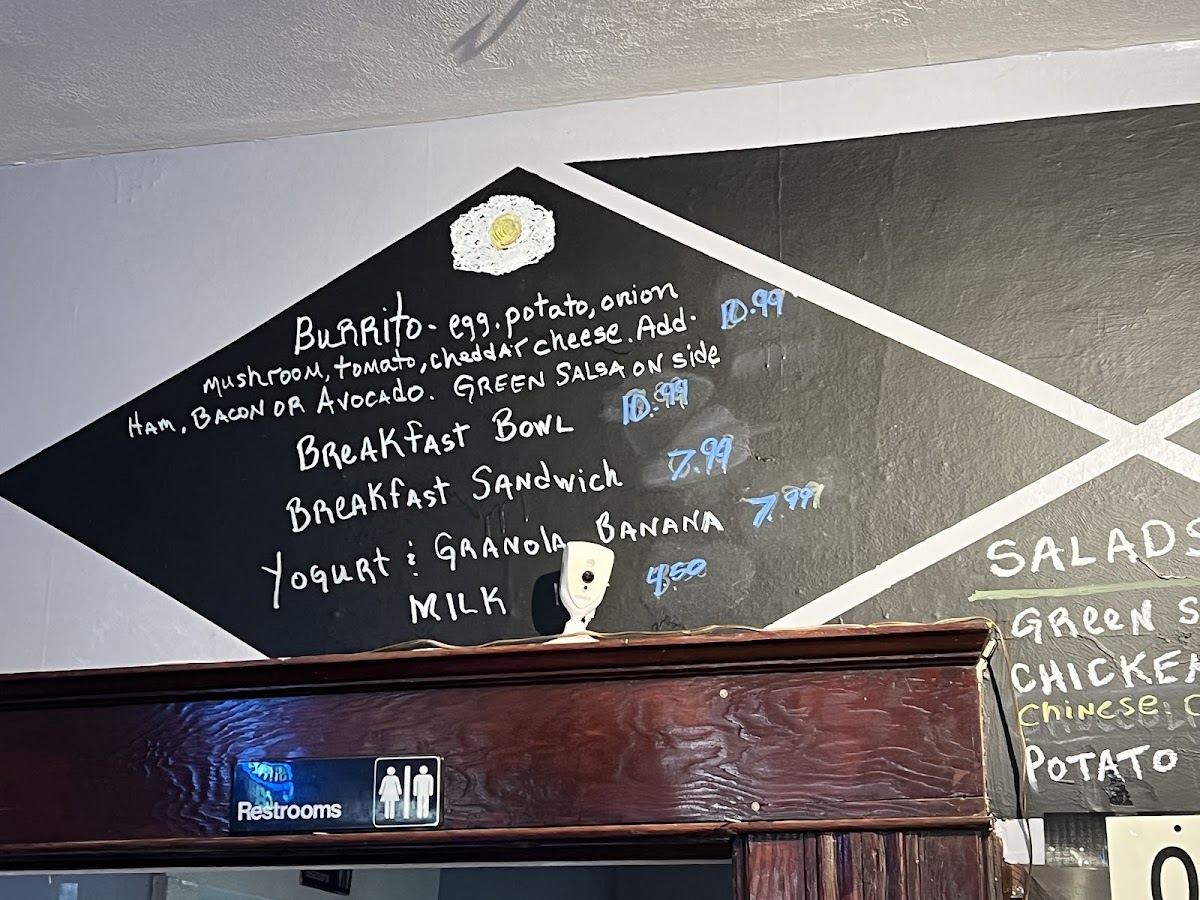 Burrito - egg. potato, onion
mushroom, tomato, cheddar cheese. Add. 10.99
Ham, Bacon or Avocado. Green Salsa on side
Breakfast Bowl 10.99
Breakfast Sandwich 7.99
Yogurt & Granola Banana 7.99
Milk 4.50
SALADS
Green S
Chicken
Chinese C
Potato
Restrooms
0